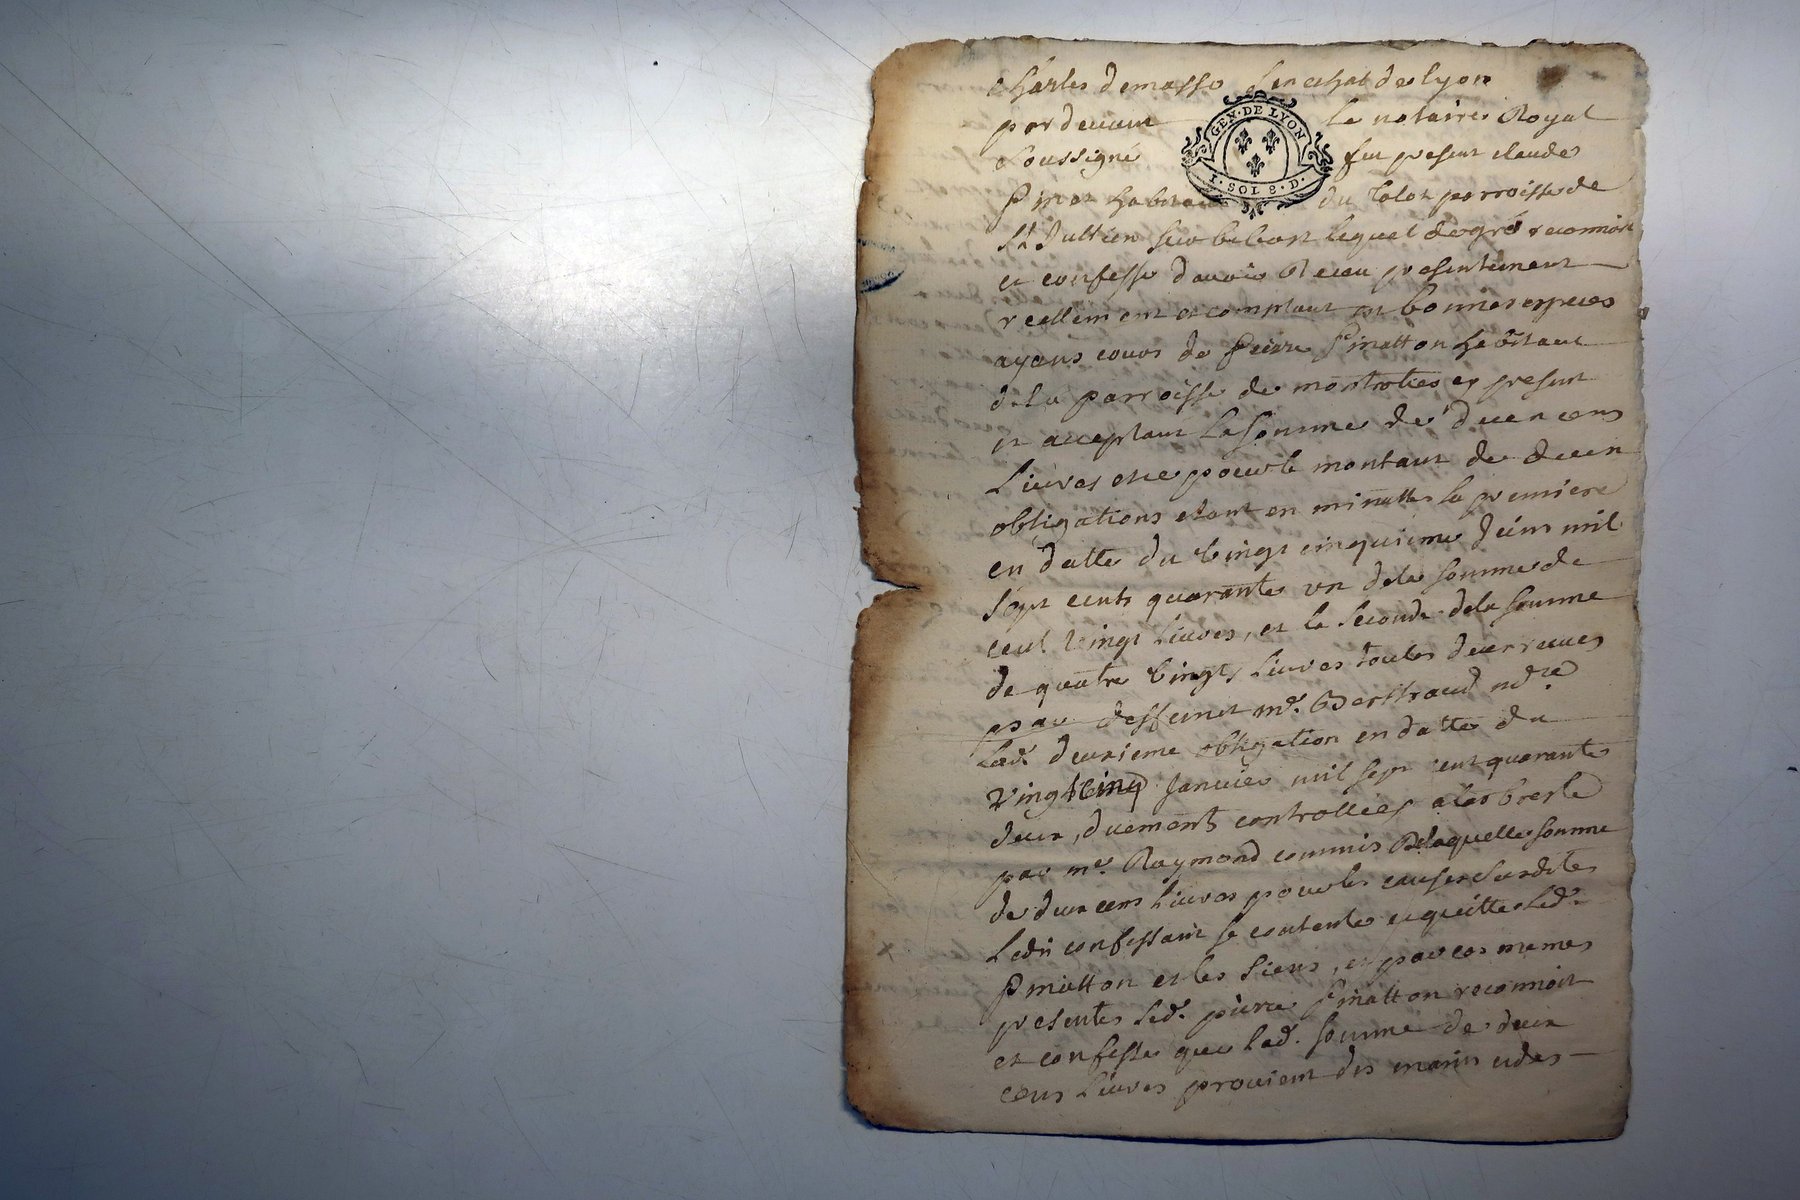 Charles Demasso Senechal de lyon
pardevant le notaire Royal
GEN·DE LYON
I·SOL 8·D·
Soussigné fut present claude
Pinet habitant du parroisse de
St Jullien sur bibost lequel de gré reconnoit
et confesse davoir Receu presentement
reellement et comptant en bonnes especes
ayans cours de pierre Pinatton habitant
de la parroisse de montrotier cy present
et acceptant la somme de deux cens
Livres et ce pour le montant de deux
obligations etant en minutte la premiere
en datte du vingt cinquieme Juin mil
sept cents quarante un de la somme de
cent vingt Livres, et la seconde de la somme
de quatre vingts Livres toutes deux receues
par deffunct me. Berthaud nore
Lade. deuxieme obligation en datte du
vingt cinq Janvier mil sept cent quarante
deux, duement controllées a larbresle
par me. Raymond commis De laquelle somme
de deux cens Livres pour les causes susdites
Ledit confessant se contente et quitte Led.
Pinatton et les siens, et par ces memes
presentes led. pierre Pinatton reconnoit
et confesse que lad. somme de deux
cens Livres provient des mains